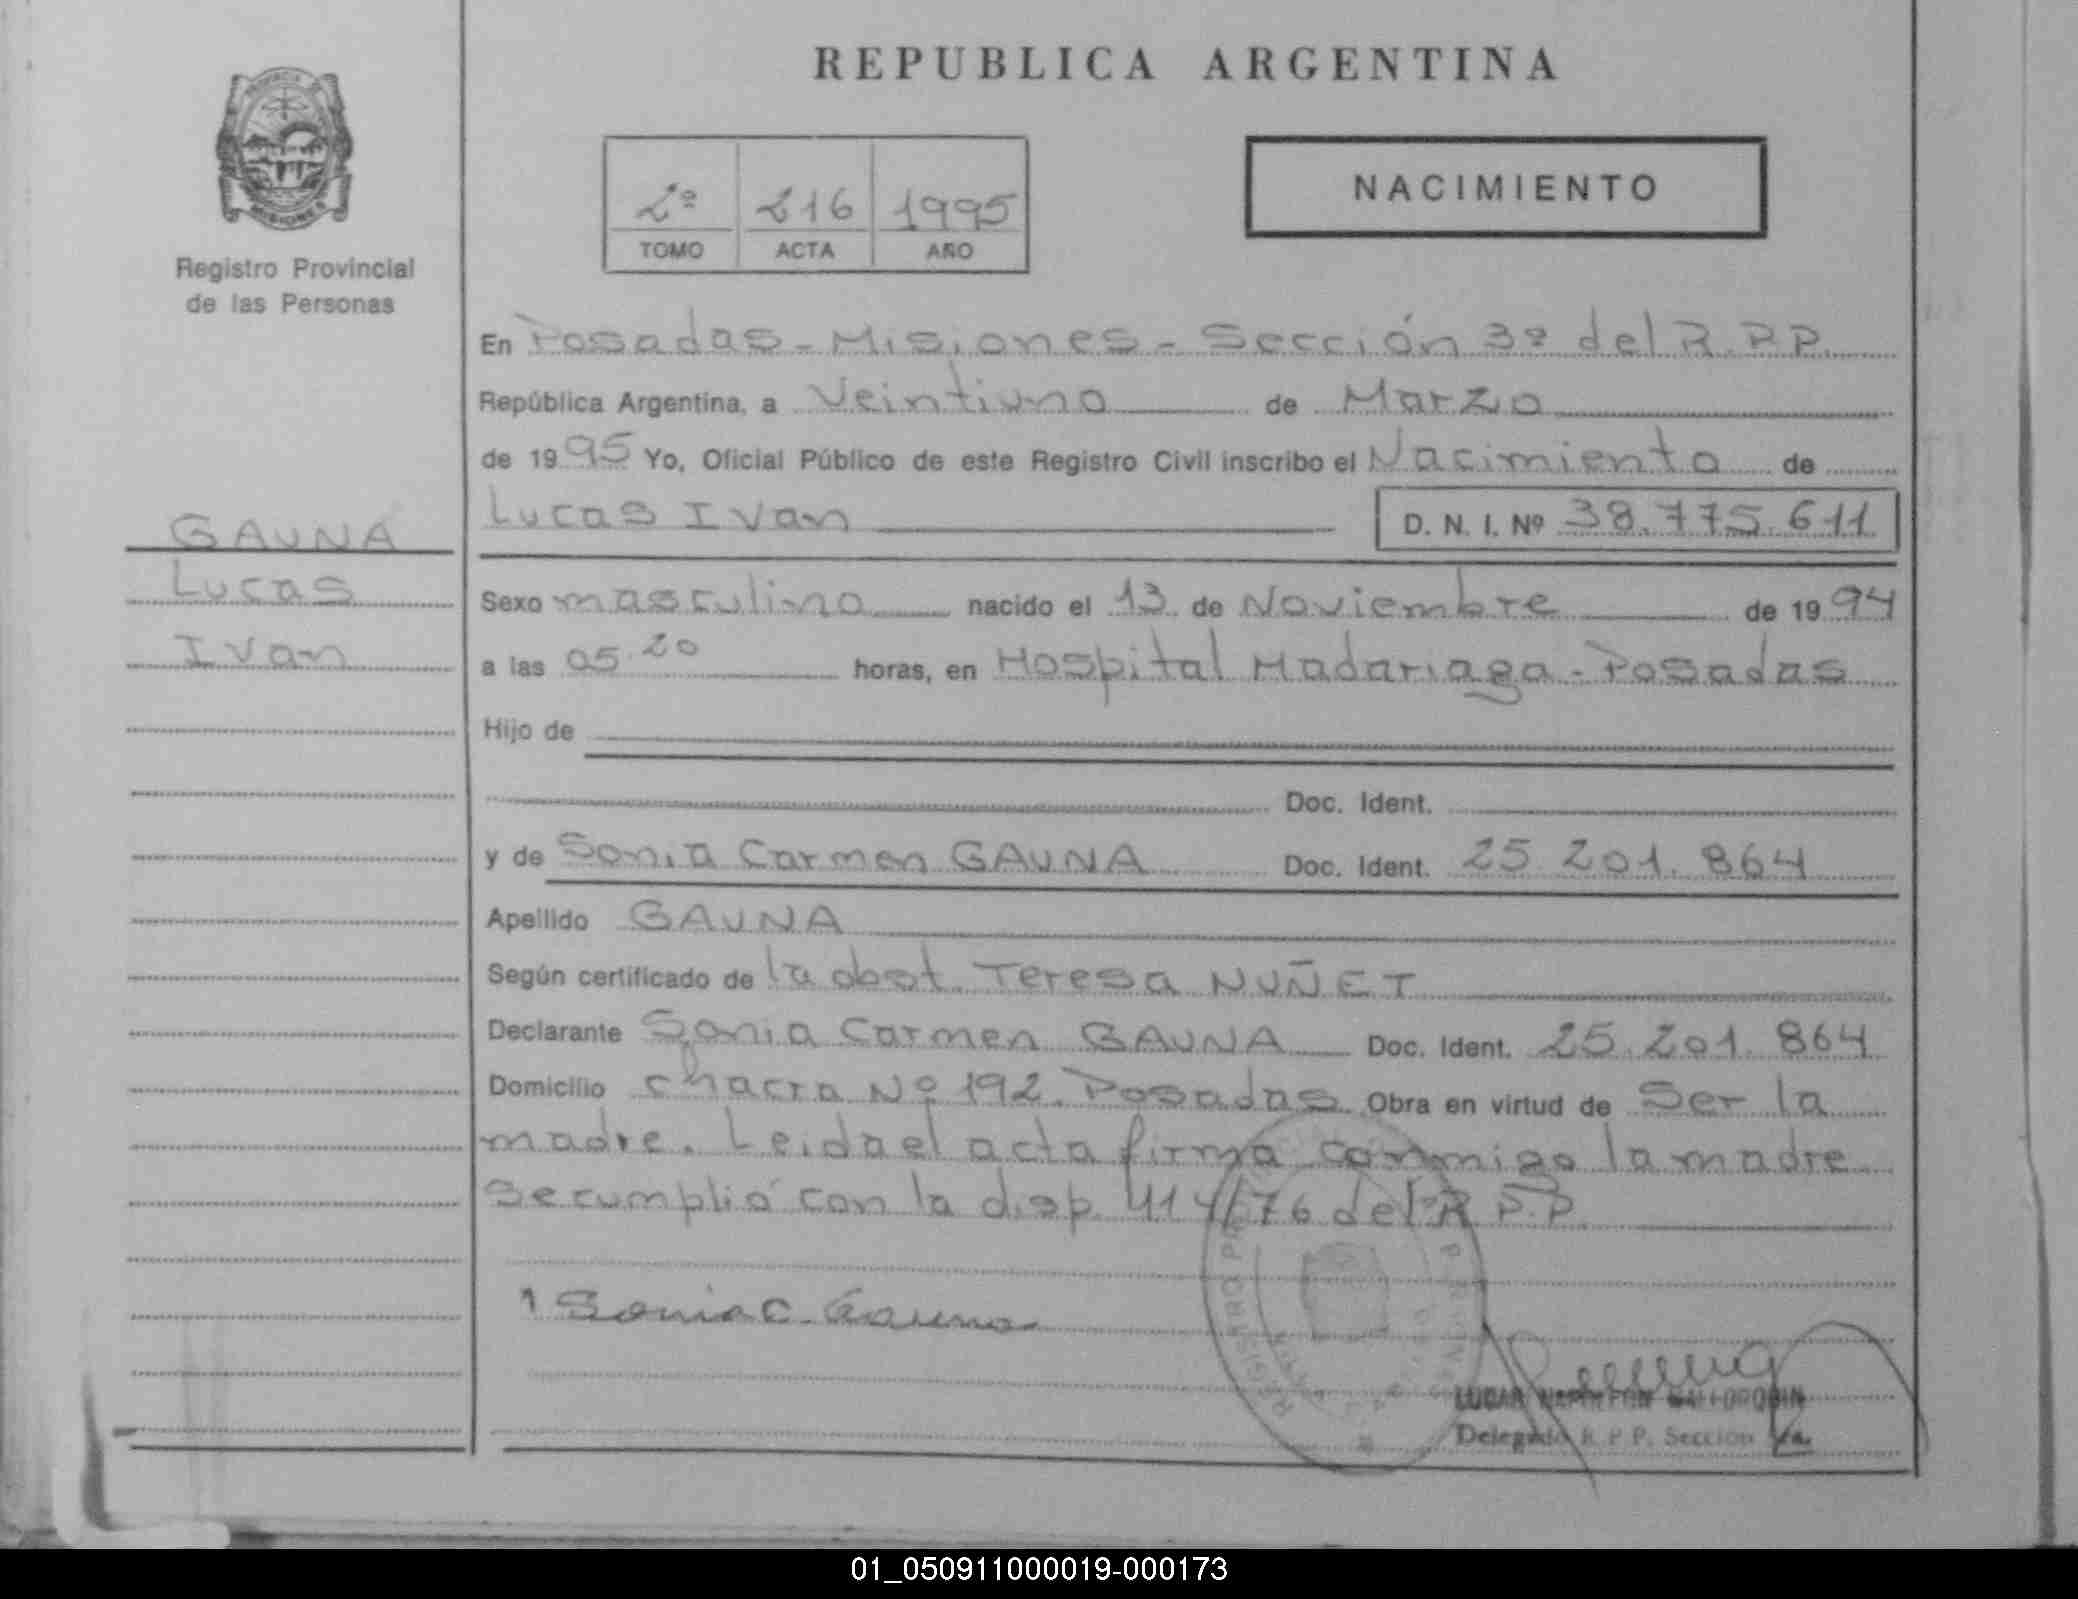 REPUBLICA ARGENTINA
PROVINCIA
MISIONES
Registro Provincial
de las Personas
2º 216 1995
TOMO ACTA AÑO
NACIMIENTO
En Posadas - Misiones - Sección 3º del R.P.P.
República Argentina, a Veintiuno de Marzo
de 1995 Yo, Oficial Público de este Registro Civil inscribo el Nacimiento de
Lucas Ivan D. N. I. Nº 38.775.611
GAUNA
Lucas
Ivan
Sexo masculino nacido el 13 de Noviembre de 1994
a las 05.20 horas, en Hospital Madariaga - Posadas
Hijo de
Doc. Ident.
y de Sonia Carmen GAUNA Doc. Ident. 25.201.864
Apellido GAUNA
Según certificado de la obst. Teresa NUÑEZ
Declarante Sonia Carmen GAUNA Doc. Ident. 25.201.864
Domicilio chacra Nº 192. Posadas Obra en virtud de Ser la
madre. Leida el acta firma conmigo la madre
Se cumplió con la disp. 414/76 del R.P.P.
Sonia C. Gauna
REGISTRO
Delegado R.P.P. Sección
01_050911000019-000173